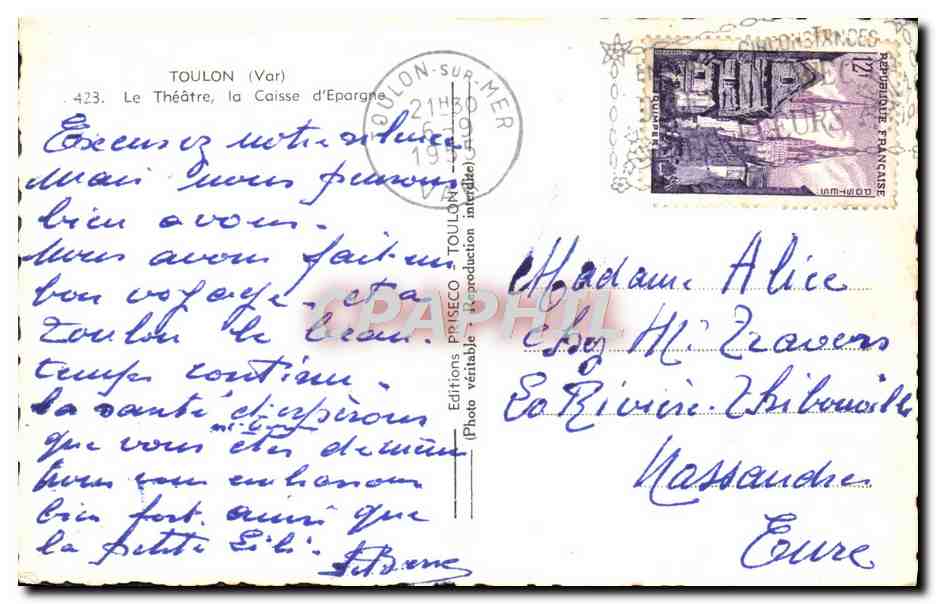 TOULON (Var)
423. Le Théâtre, la Caisse d'Epargne
Excusez notre silence
Mais nous pensons
bien a vous.
Nous avons fait un
bon voyage. et a
Toulon le beau
temps continu.
la santé et espérons
que vous êtes de même
nous vous embrassons
bien fort. ainsi que
la petite Lili.
TOULON-SUR-MER
21H30
6-9
195
VAR
Editions PRISECO - TOULON
(Photo véritable - Reproduction interdite)
CPAPHIL
CIRCONSTANCES
FLEURS
12F
REPUBLIQUE FRANÇAISE
POSTES
QUIMPER
Madame Alice
chez Mr Travers
La Rivière-Thibouville
Nassandres
Eure